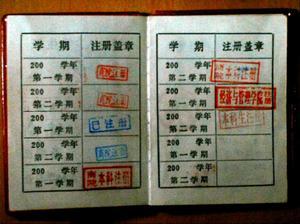 学 期 注册盖章
200 学年
第一学期
200 学年
第二学期
200 学年
第一学期
已注册
200 学年
第二学期
200 学年
第一学期
本科注册
学 期 注册盖章
200 学年
第二学期
本科注册
200 学年
第一学期
经济与管理学院
200 学年
第二学期
本科生注册
200 学年
第一学期
200 学年
第二学期